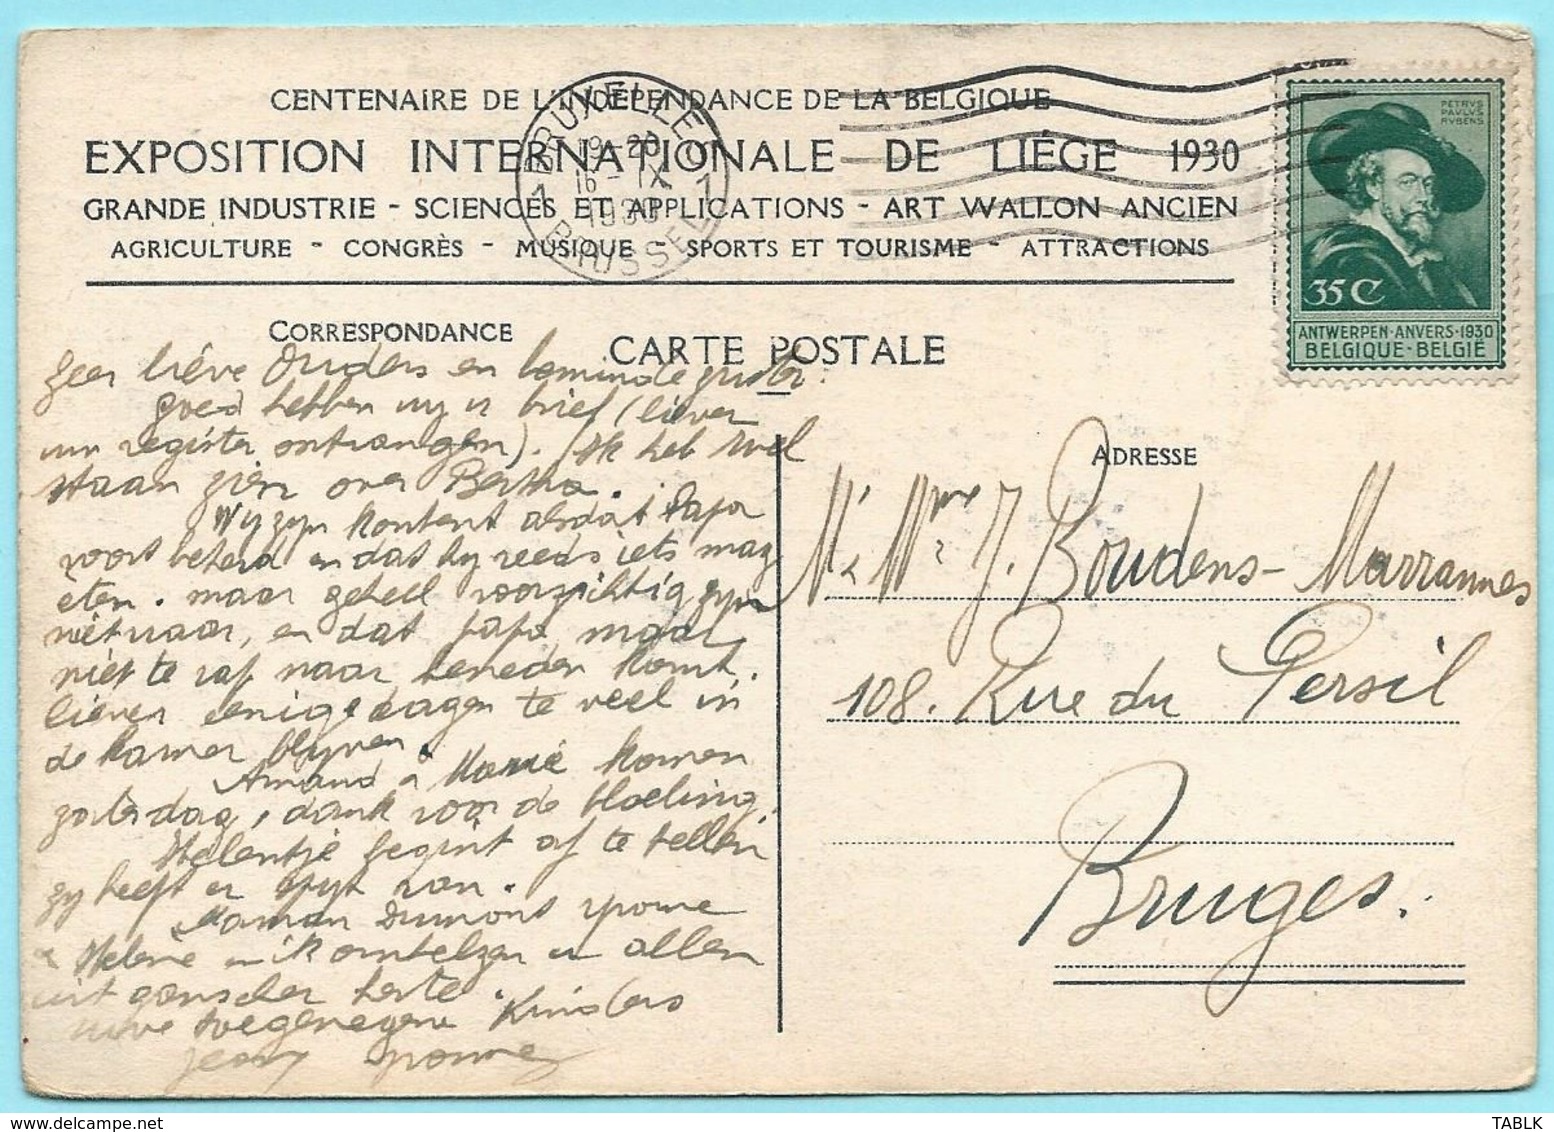 CENTENAIRE DE L'INDÉPENDANCE DE LA BELGIQUE
EXPOSITION INTERNATIONALE DE LIÉGE 1930
GRANDE INDUSTRIE - SCIENCES ET APPLICATIONS - ART WALLON ANCIEN
AGRICULTURE - CONGRÈS - MUSIQUE - SPORTS ET TOURISME - ATTRACTIONS
1 BRUXELLES 1
19-20
16-IX
1930
1 BRUSSEL 1
PETRVS
PAVLVS
RVBENS
35 C
ANTWERPEN·ANVERS·1930
BELGIQUE·BELGIË
CORRESPONDANCE
CARTE POSTALE
Zeer liéve Ouders en beminde zuster.
goed hebben wy u brief (liever
uw register ontvangen). Ik heb wel
staan zien over Bertha.
Wy zyn kontent alsdat Papa
voort beterd en dat hy reeds iets mag
eten. maar geheel voorzichtig zyn
niet waar, en dat papa maar
niet te rap naar beneden komt.
liever eenige dagen te veel in
de kamer blyven
Amand & Marie komen
zaterdag, dank voor de
Helentje begint af te tellen
zy heeft er spyt van.
Maman Dumont
& Helene en ik omhelzen u allen
uit ganscher herte.
uwe toegenegene Kinders
ADRESSE
Mr & Mme J. Boudens-Marrannes
108. Rue du Persil
Bruges.
TABLK